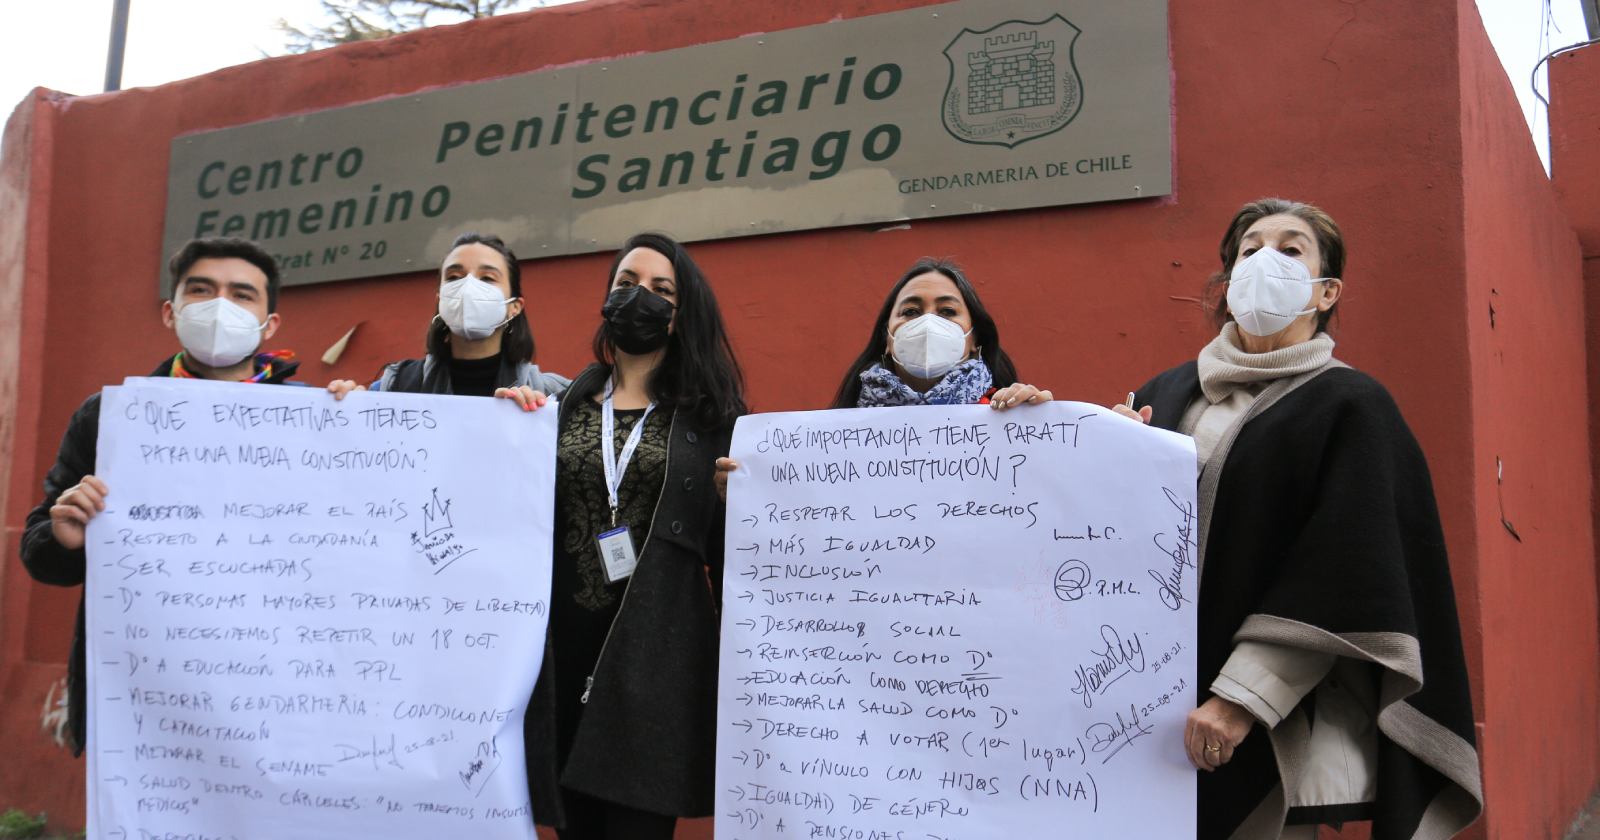 Centro Penitenciario
Femenino Santiago
Prat Nº 20
LABOR OMNIA VINCIT
GENDARMERIA DE CHILE
¿QUÉ EXPECTATIVAS TIENES
PARA UNA NUEVA CONSTITUCIÓN?
- MEJORAR EL PAÍS
- RESPETO A LA CIUDADANÍA
- SER ESCUCHADAS
- Dº PERSONAS MAYORES PRIVADAS DE LIBERTAD
- NO NECESITEMOS REPETIR UN 18 OCT.
- Dº A EDUCACIÓN PARA PPL
- MEJORAR GENDARMERIA: CONDICIONES
Y CAPACITACIÓN
- MEJORAR EL SENAME
25-08-21.
→ SALUD DENTRO CÁRCELES: "NO TENEMOS INSUMOS
MEDICOS"
→ DERECHOS
¿QUÉ IMPORTANCIA TIENE PARA TÍ
UNA NUEVA CONSTITUCIÓN?
→ RESPETAR LOS DERECHOS
→ MÁS IGUALDAD
→ INCLUSIÓN
→ JUSTICIA IGUALITARIA
P.M.L.
→ DESARROLLO SOCIAL
→ REINSERCIÓN COMO Dº
→ EDUCACIÓN COMO DERECHO
25-08-21.
→ MEJORAR LA SALUD COMO Dº
→ DERECHO A VOTAR (1er lugar)
25-08-21
→ Dº a VÍNCULO CON HIJOS (NNA)
→ IGUALDAD DE GÉNERO
→ Dº A PENSIONES